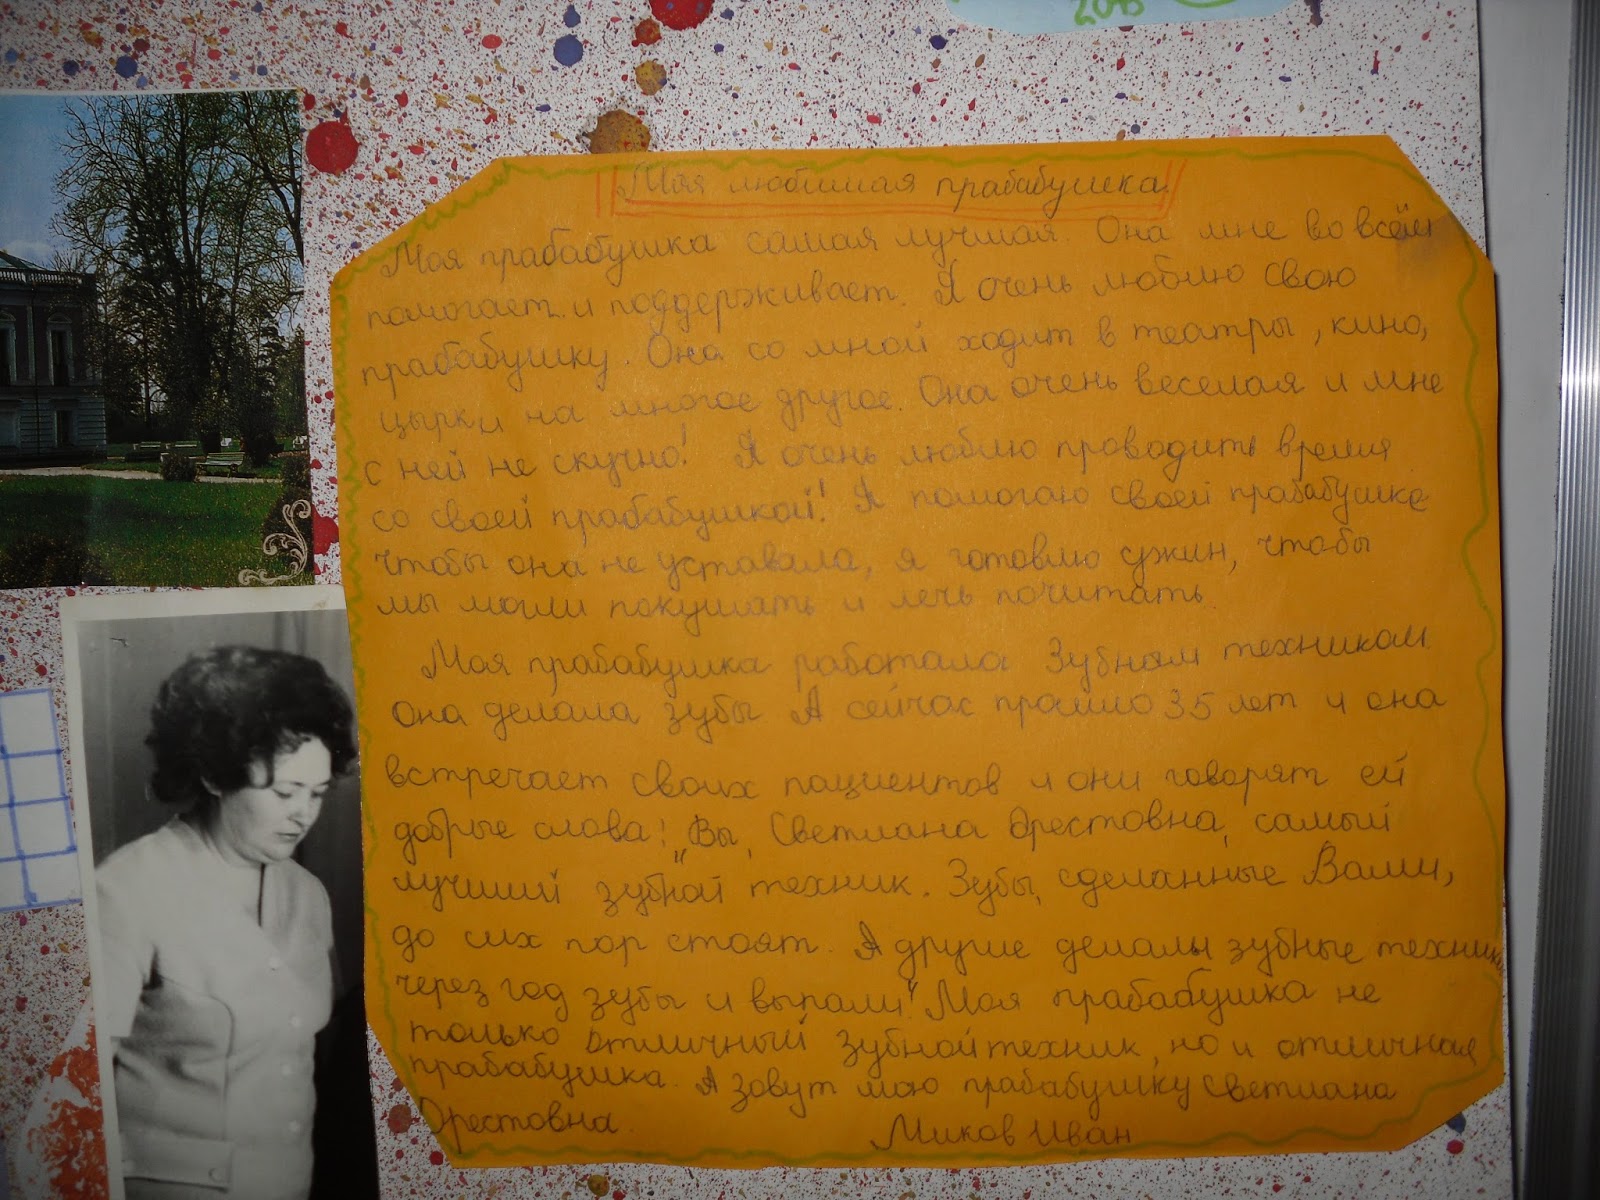 2015
Моя любимая прабабушка.
Моя прабабушка самая лучшая. Она мне во всём
помогает и поддерживает. Я очень люблю свою
прабабушку. Она со мной ходит в театры, кино,
цырки на многое другое. Она очень веселая и мне
с ней не скучно! Я очень люблю проводить время
со своей прабабушкой! Я помогаю своей прабабушке
чтобы она не уставала, я готовлю ужин, чтобы
мы могли покушать и лечь почитать.
Моя прабабушка работала Зубном техником.
Она делала зубы. А сейчас прошло 35 лет и она
встречает своих пациентов и они говорят ей
добрые слова! „Вы, Светлана Орестовна, самый
лучший зубной техник. Зубы, сделанные Вами,
до сих пор стоят. А другие делалы зубные техники
через год зубы и выпали!" Моя прабабушка не
только отличный зубной техник, но и отличная
прабабушка. А зовут мою прабабушку Светлана
Орестовна.
Миков Иван